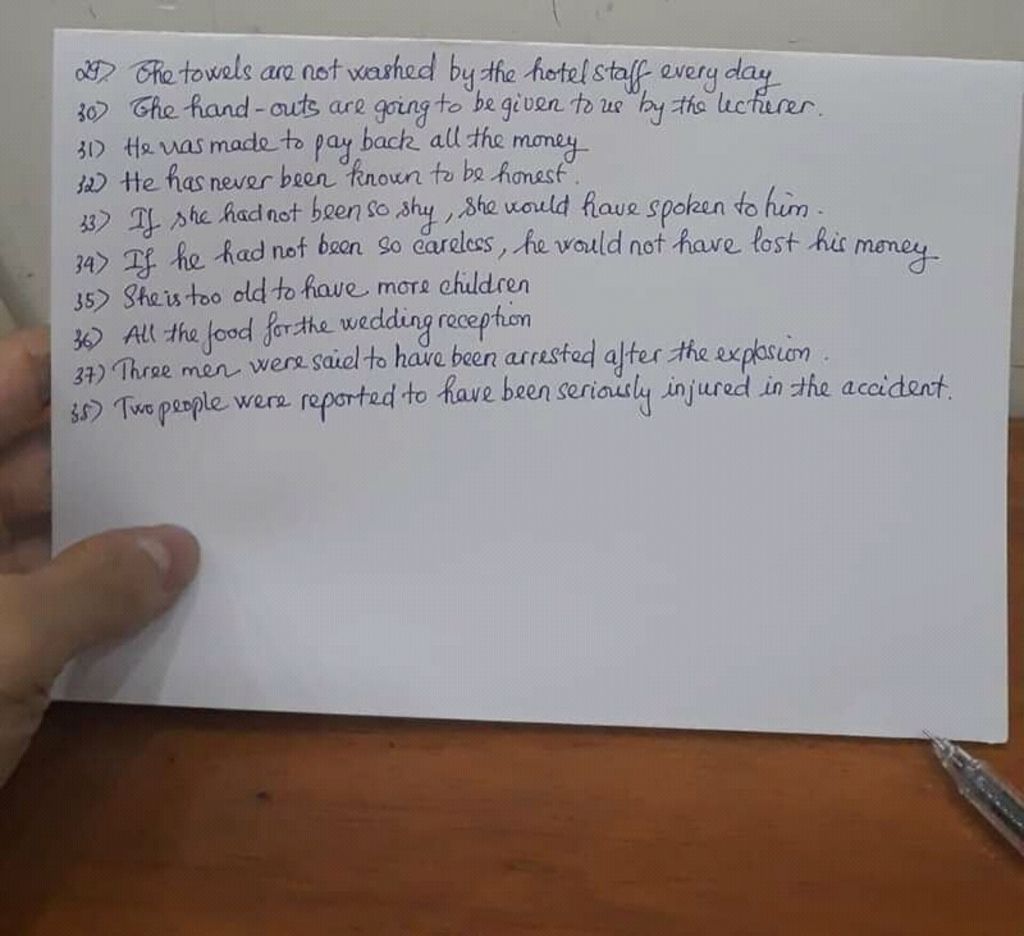 29) The towels are not washed by the hotel staff every day
30) The hand-outs are going to be given to us by the lecturer.
31) He was made to pay back all the money
32) He has never been known to be honest.
33) If she had not been so shy, she would have spoken to him.
34) If he had not been so careless, he would not have lost his money
35) She is too old to have more children
36) All the food for the wedding reception
37) Three men were said to have been arrested after the explosion.
38) Two people were reported to have been seriously injured in the accident.